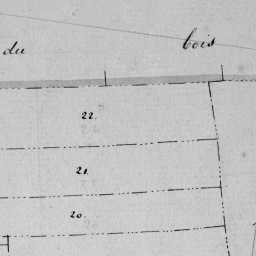 du bois
22.
21.
20.